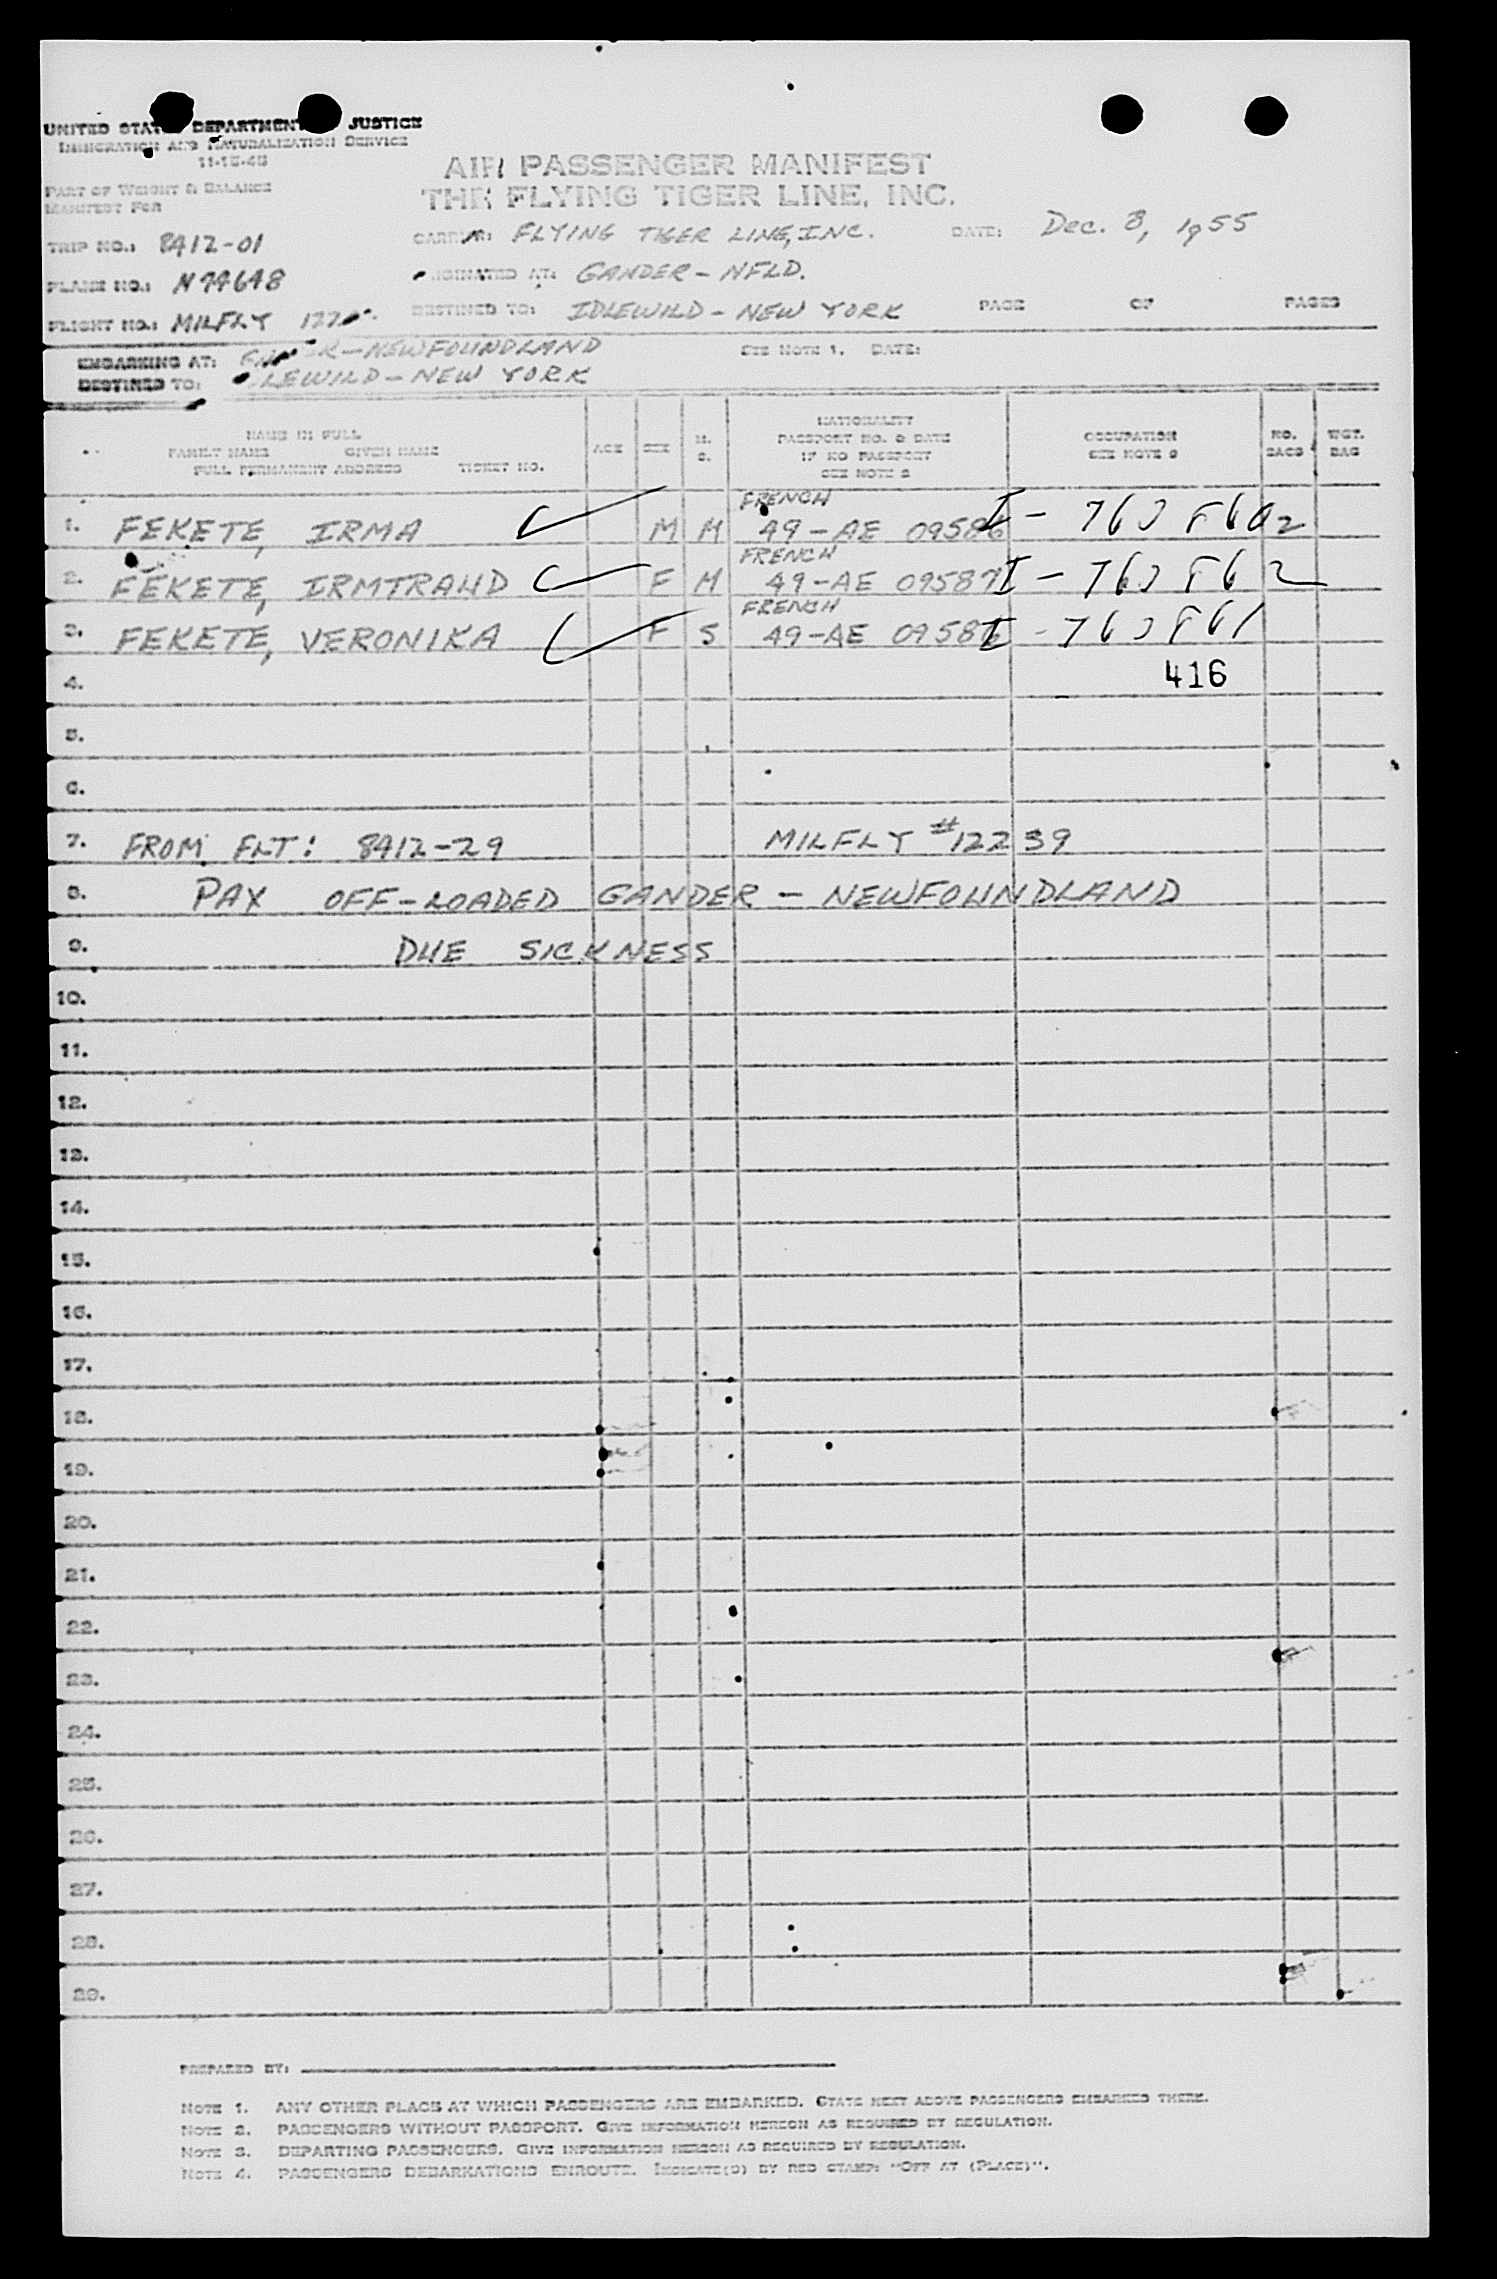 UNITED STATES DEPARTMENT JUSTICE
IMMIGRATION AND NATURALIZATION SERVICE
11-15-48
PART OF WEIGHT & BALANCE
MANIFEST FOR
AIR PASSENGER MANIFEST
THE FLYING TIGER LINE, INC.
TRIP NO.: 8412-01
CARRIER: FLYING TIGER LINE, INC. DATE: Dec. 8, 1955
PLANE NO.: N94648
ORIGINATED AT: GANDER - NFLD.
FLIGHT NO.: MILFLY
DESTINED TO: IDLEWILD - NEW YORK PAGE OF PAGES
EMBARKING AT: -NEWFOUNDLAND SEE NOTE 1. DATE:
DESTINED TO: LEWILD - NEW YORK
NAME IN FULL
FAMILY NAME GIVEN NAME
FULL PERMANENT ADDRESS TICKET NO.
AGE SEX M. S.
NATIONALITY
PASSPORT NO. & DATE
IF NO PASSPORT
SEE NOTE 2
OCCUPATION
SEE NOTE 3
NO. BAGS
WGT. BAG
FRENCH
1. FEKETE, IRMA M M 49-AE 09586 I-
FRENCH
2. FEKETE, IRMTRAUD F M 49-AE 09587 I-763862
FRENCH
3. FEKETE, VERONIKA F S 49-AE I-763861
4. 416
5.
6.
7. FROM FLT: 8412-29 MILFLY #12239
8. PAX OFF-LOADED GANDER - NEWFOUNDLAND
9. DUE SICKNESS
10.
11.
12.
13.
14.
15.
16.
17.
18.
19.
20.
21.
22.
23.
24.
25.
26.
27.
28.
29.
PREPARED BY:
NOTE 1. ANY OTHER PLACE AT WHICH PASSENGERS ARE EMBARKED. STATE NEXT ABOVE PASSENGERS EMBARKED THERE.
NOTE 2. PASSENGERS WITHOUT PASSPORT. GIVE INFORMATION HEREON AS REQUIRED BY REGULATION.
NOTE 3. DEPARTING PASSENGERS. GIVE INFORMATION HEREON AS REQUIRED BY REGULATION.
NOTE 4. PASSENGERS DEBARKATIONS ENROUTE. INDICATE(D) BY RED STAMP: "OFF AT (PLACE)".